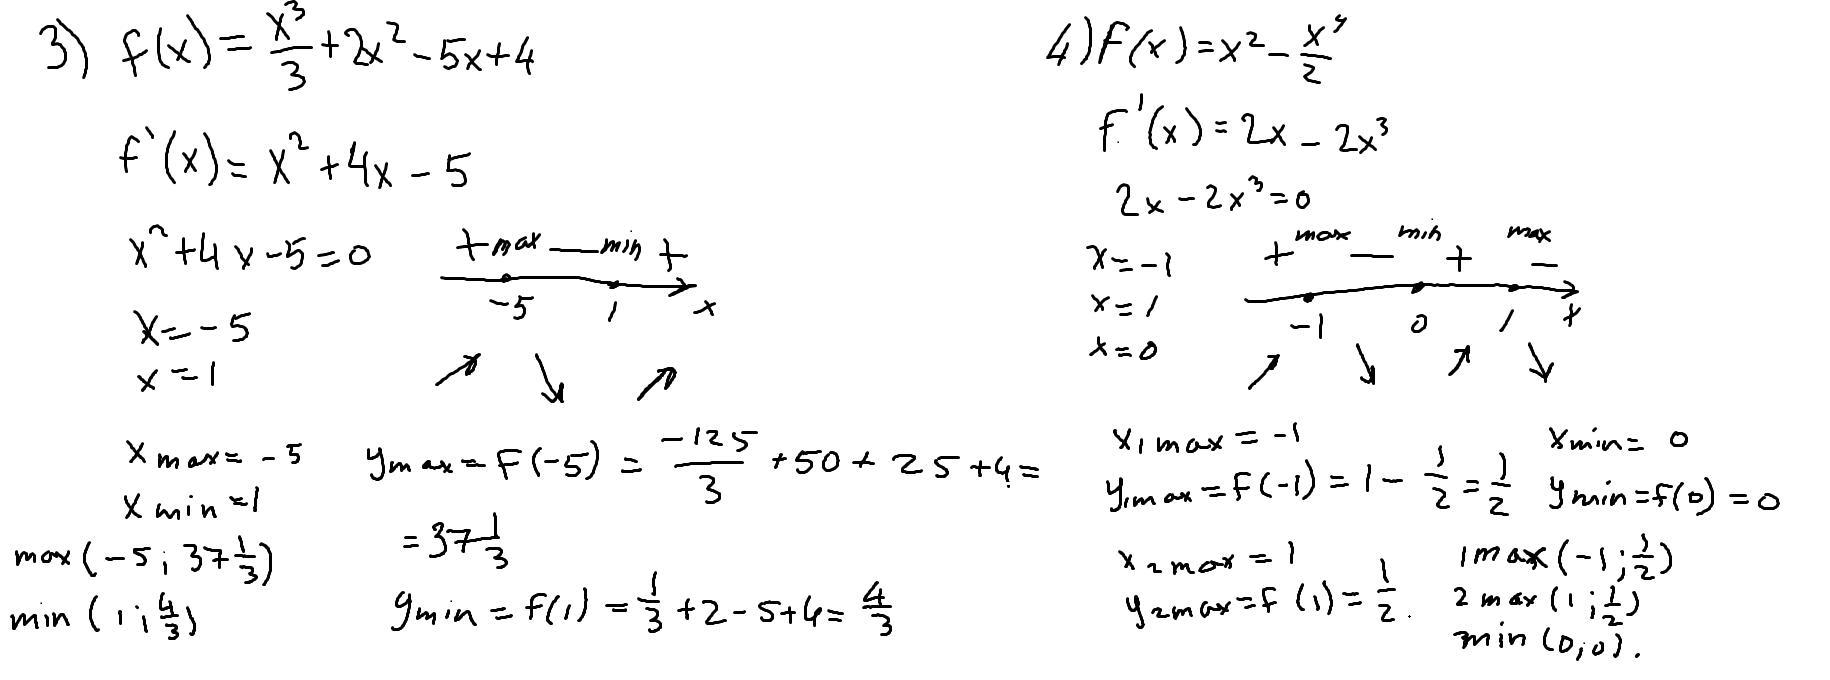 3) f(x) = x³/3 + 2x² - 5x + 4
f'(x) = x² + 4x - 5
x² + 4x - 5 = 0
+ max — min +
-5 1 x
x = -5
x = 1
↗ ↘ ↗
x max = -5
x min = 1
y max = f(-5) = -125/3 + 50 + 25 + 4 =
= 37 1/3
y min = f(1) = 1/3 + 2 - 5 + 4 = 4/3
max (-5; 37 1/3)
min (1; 4/3)
4) f(x) = x² - x⁴/2
f'(x) = 2x - 2x³
2x - 2x³ = 0
x = -1
x = 1
x = 0
+ max — min + max —
-1 0 1 x
↗ ↘ ↗ ↘
x₁ max = -1
y₁ max = f(-1) = 1 - 1/2 = 1/2
x min = 0
y min = f(0) = 0
x₂ max = 1
y₂ max = f(1) = 1/2.
1 max (-1; 1/2)
2 max (1; 1/2)
min (0; 0).